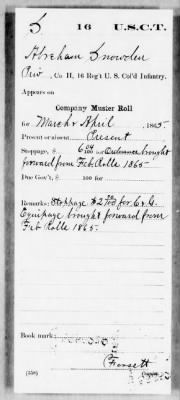 S 16 U.S.C.T.
Abraham Snowden
Priv, Co. H, 16 Reg't U. S. Col'd Infantry.
Appears on
Company Muster Roll
for March & April, 1865.
Present or absent Present
Stoppage, $ 6 04/100 for Ordnance brought
forward from Feb Rolls 1865
Due Gov't, $ 100 for
Remarks: Stoppage $2 /100 for C & G.
Equipage brought forward from
Feb Rolls 1865.
Book mark:
(358) Copyist.